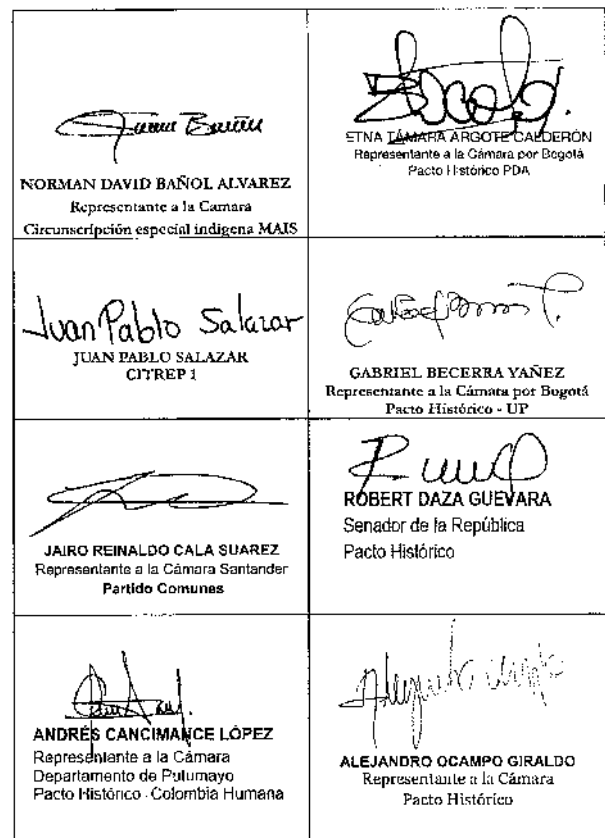 NORMAN DAVID BAÑOL ALVAREZ
Representante a la Camara
Circunscripción especial indigena MAIS
ETNA TÁMARA ARGOTE CALDERÓN
Representante a la Cámara por Bogotá
Pacto Histórico PDA
Juan Pablo Salazar
JUAN PABLO SALAZAR
CITREP 1
GABRIEL BECERRA YAÑEZ
Representante a la Cámara por Bogotá
Pacto Histórico - UP
JAIRO REINALDO CALA SUAREZ
Representante a la Cámara Santander
Partido Comunes
ROBERT DAZA GUEVARA
Senador de la República
Pacto Histórico
ANDRÉS CANCIMANCE LÓPEZ
Representante a la Cámara
Departamento de Putumayo
Pacto Histórico - Colombia Humana
ALEJANDRO OCAMPO GIRALDO
Representante a la Cámara
Pacto Histórico